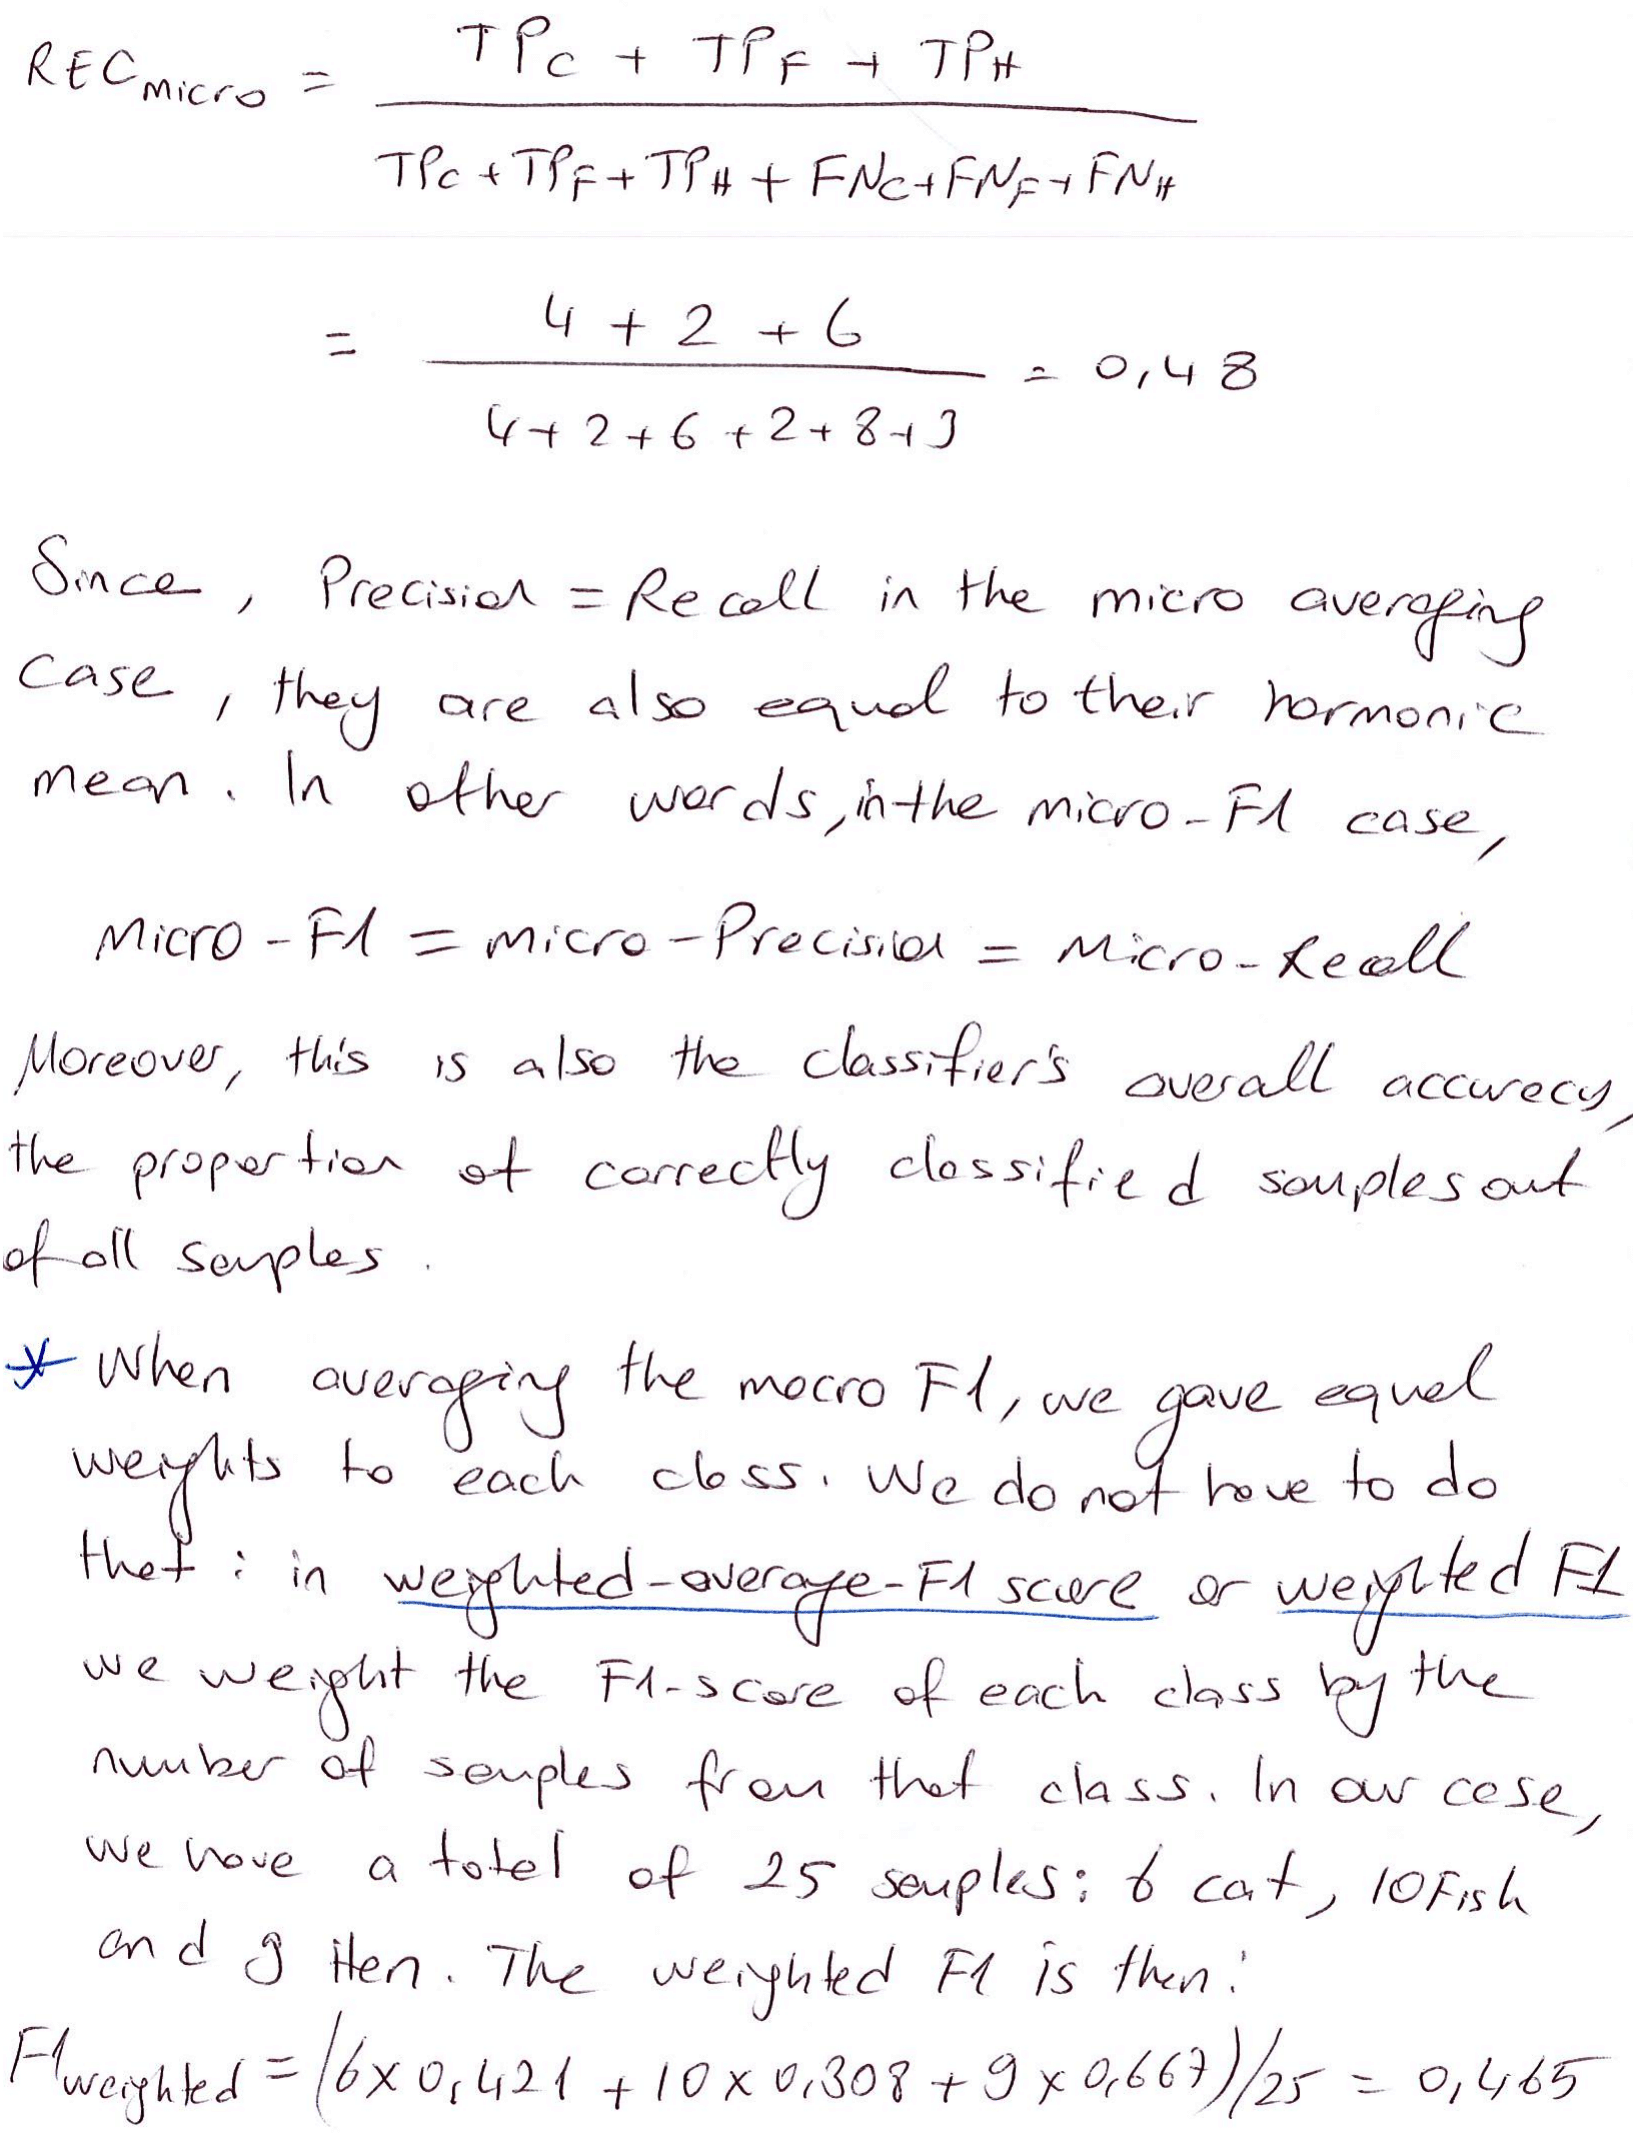 REC micro = TPC + TPF + TPH
TPC + TPF + TPH + FNC + FNF + FNH
= 4 + 2 + 6 = 0,48
4 + 2 + 6 + 2 + 8 + 3
Since, Precision = Recall in the micro averaging
case, they are also equal to their harmonic
mean. In other words, in the micro-F1 case,
Micro-F1 = micro-Precision = Micro-Recall
Moreover, this is also the classifier's overall accuracy,
the proportion of correctly classified samples out
of all samples.
* When averaging the macro F1, we gave equal
weights to each class. We do not have to do
that : in weighted-average-F1 score or weighted F1
we weight the F1-score of each class by the
number of samples from that class. In our case,
we have a total of 25 samples: 6 cat, 10 Fish
and 9 Hen. The weighted F1 is then:
F1weighted = (6 x 0,421 + 10 x 0,308 + 9 x 0,667)/25 = 0,465